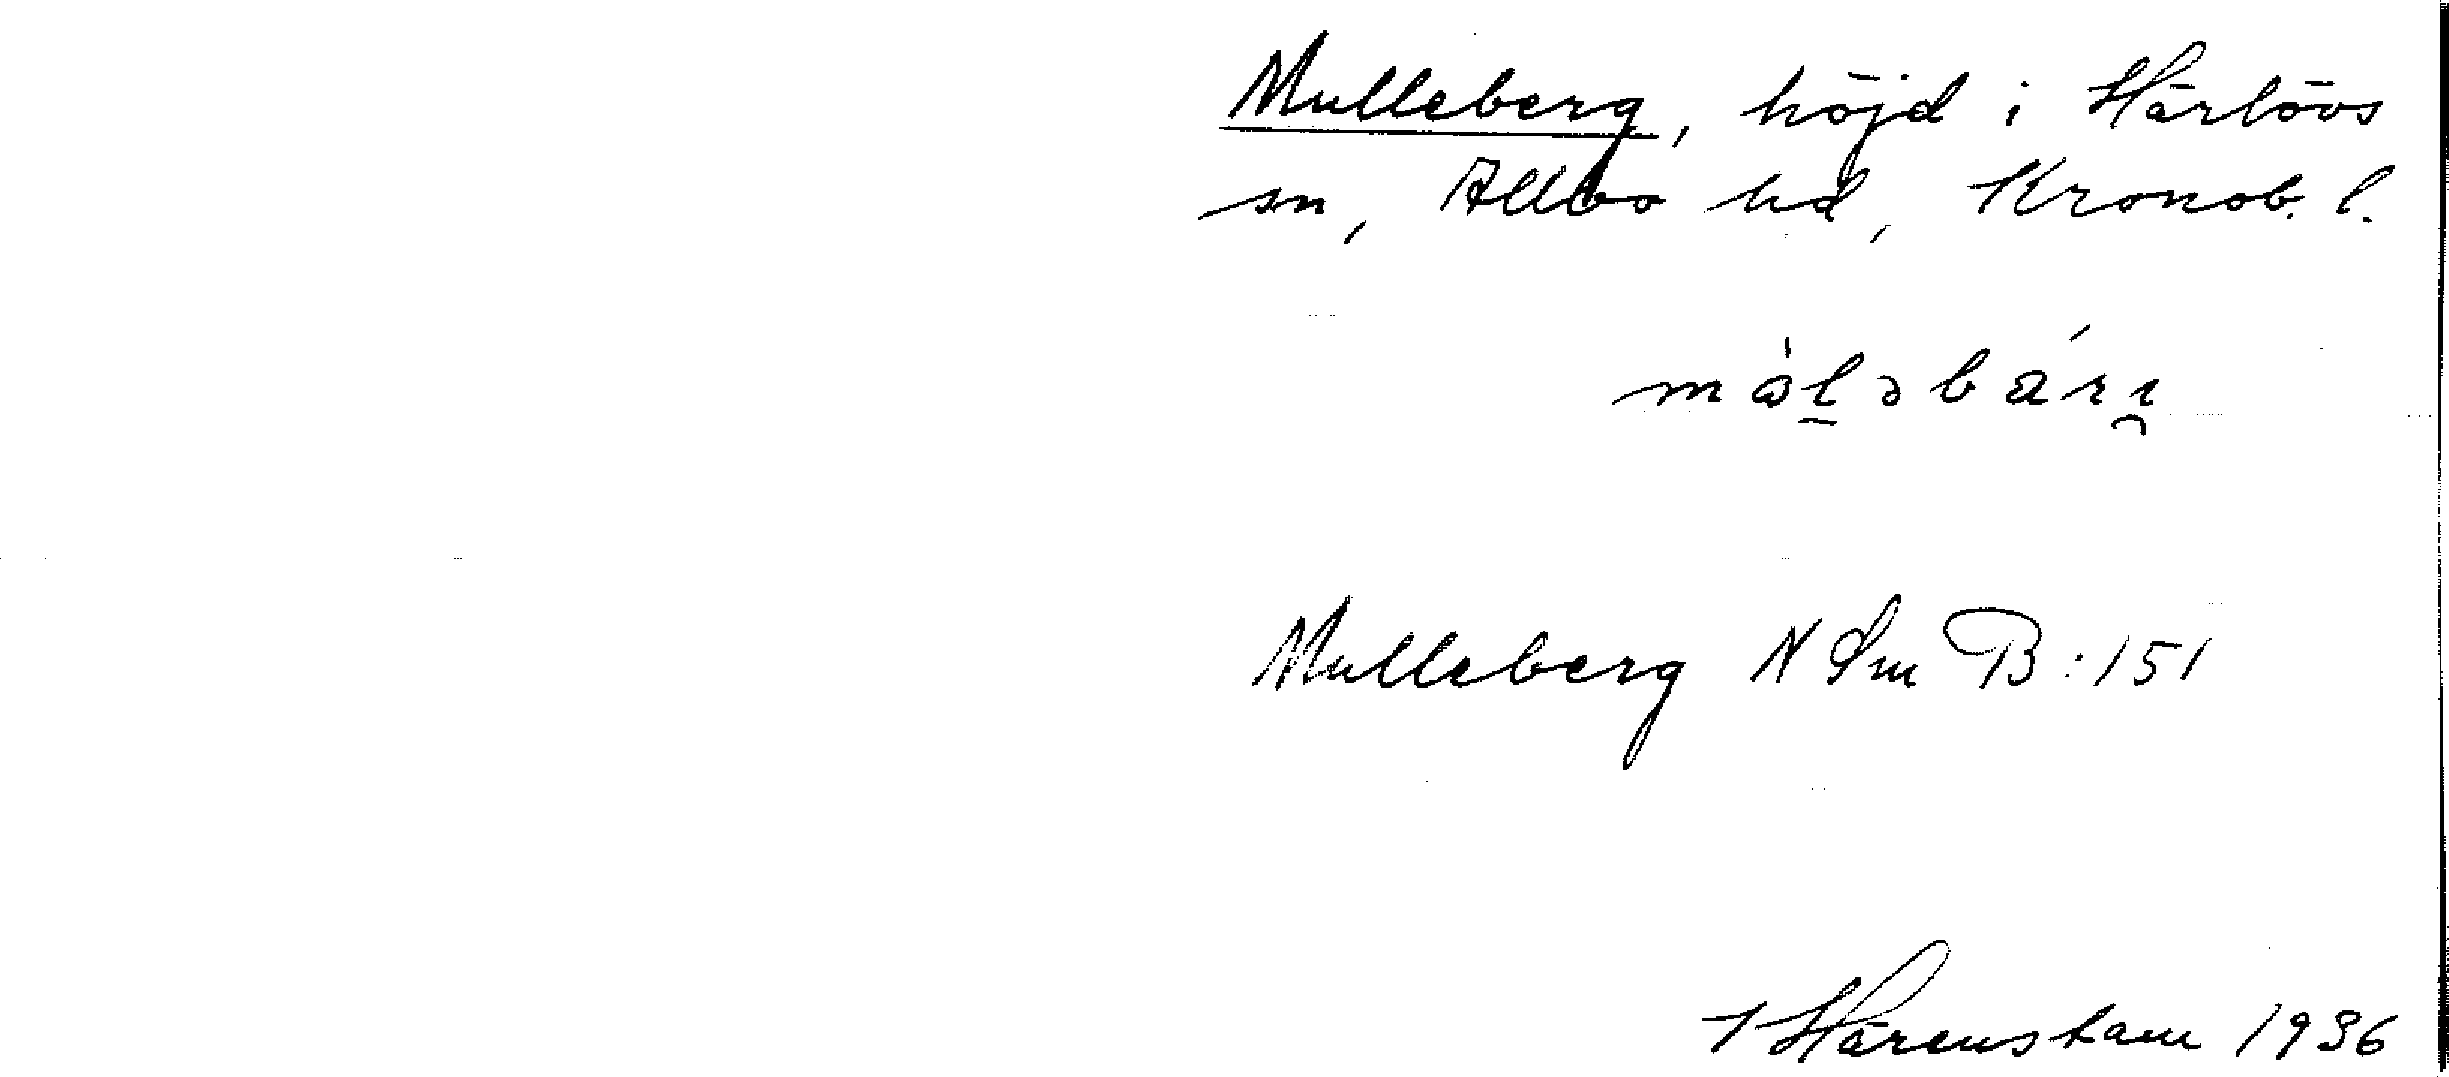 Mulleberg, höjd i Härlövs
sn, Allbo hd, Kronob. l.
Mulleberg N Sm B:151
Härenstam 1936